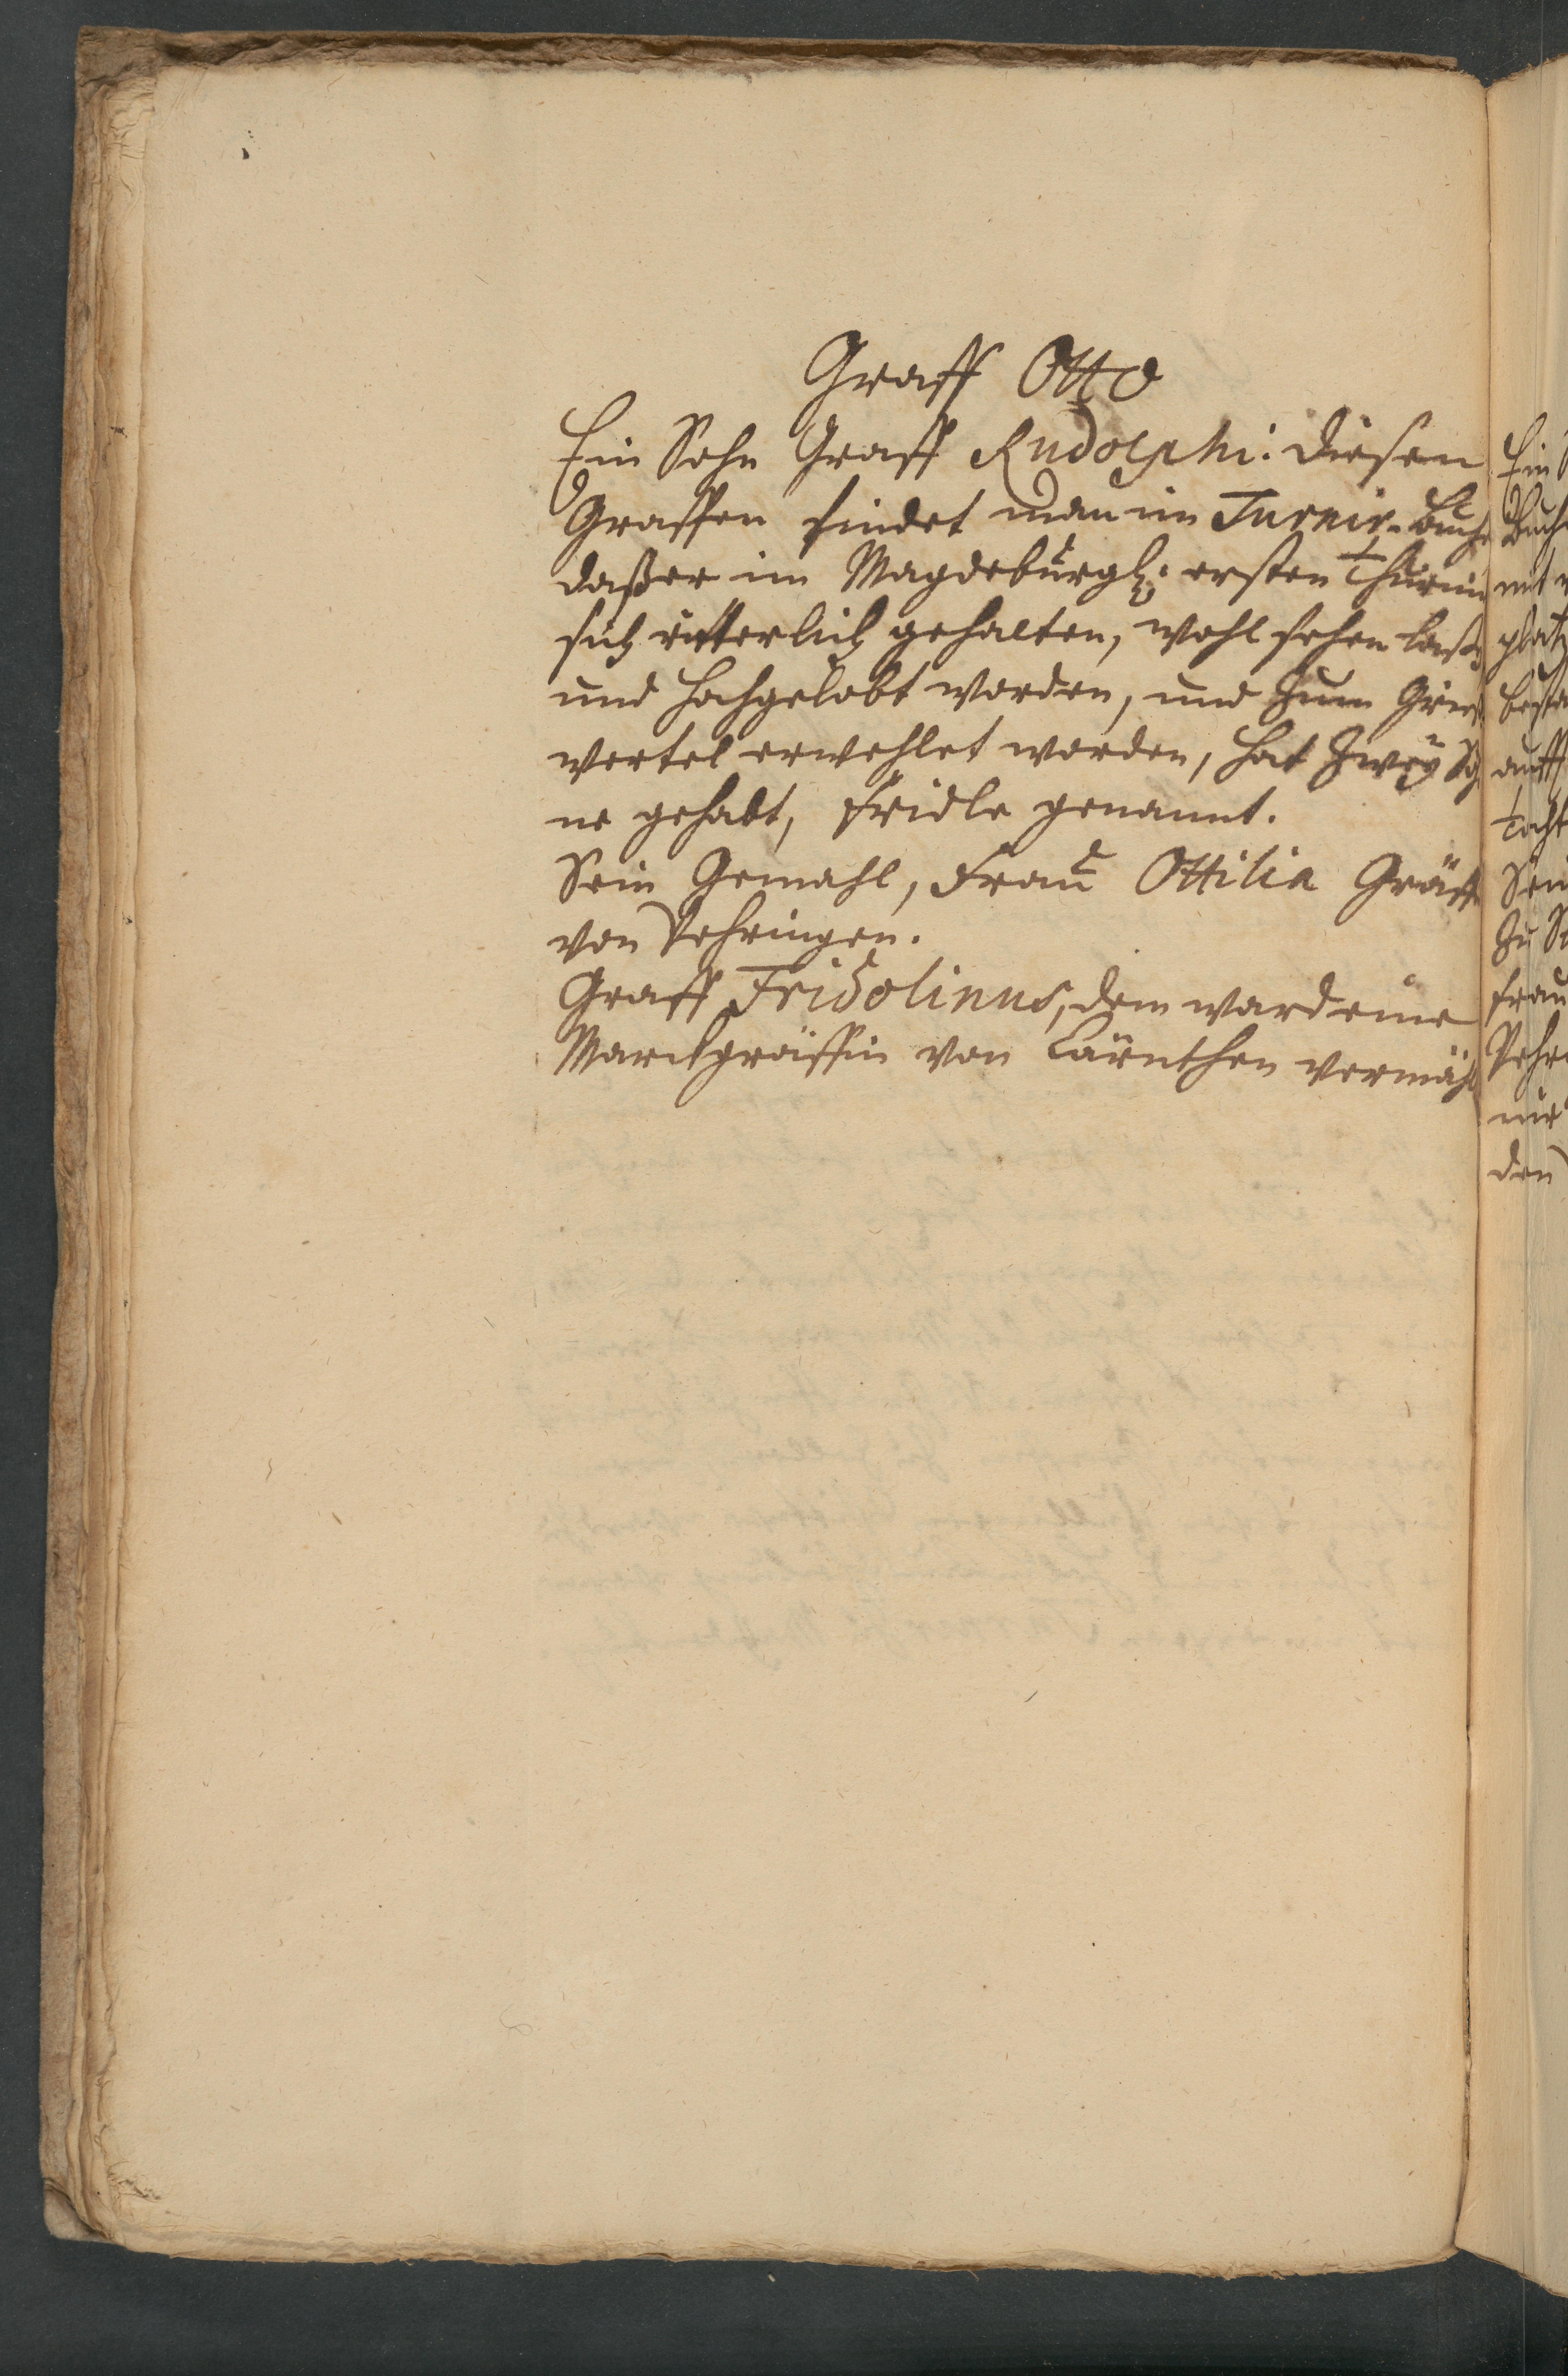 Graff Otto
Ein Sohn Graff Rudolphi: diesen
Graffen findet man im Turnir-Buche
daß er im Magdeburgl: ersten Thurnir
sich ritterlich gehalten, wohl sehen laßen
und hochgelobt worden, und zum Grieß
wertel erwehlet worden, hat zwey Söh
ne gehabt, Fridle genannt.
Sein Gemahl, Frau Ottilia Gräff
von Vehringen.
Graff Fridolinus, dem ward eine
Marckgräffin von Cärnthen vermähl